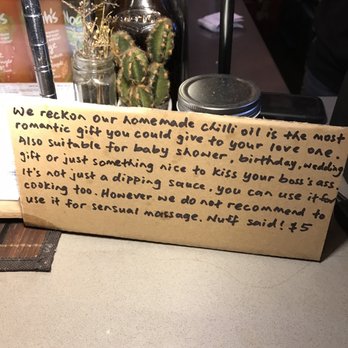 We reckon our homemade chilli oil is the most
romantic gift you could give to your love one.
Also suitable for baby shower, birthday, wedding
gift or just something nice to kiss your boss's ass.
It's not just a dipping sauce, you can use it for
cooking too. However we do not recommend to
use it for sensual massage. Nuff said! $5